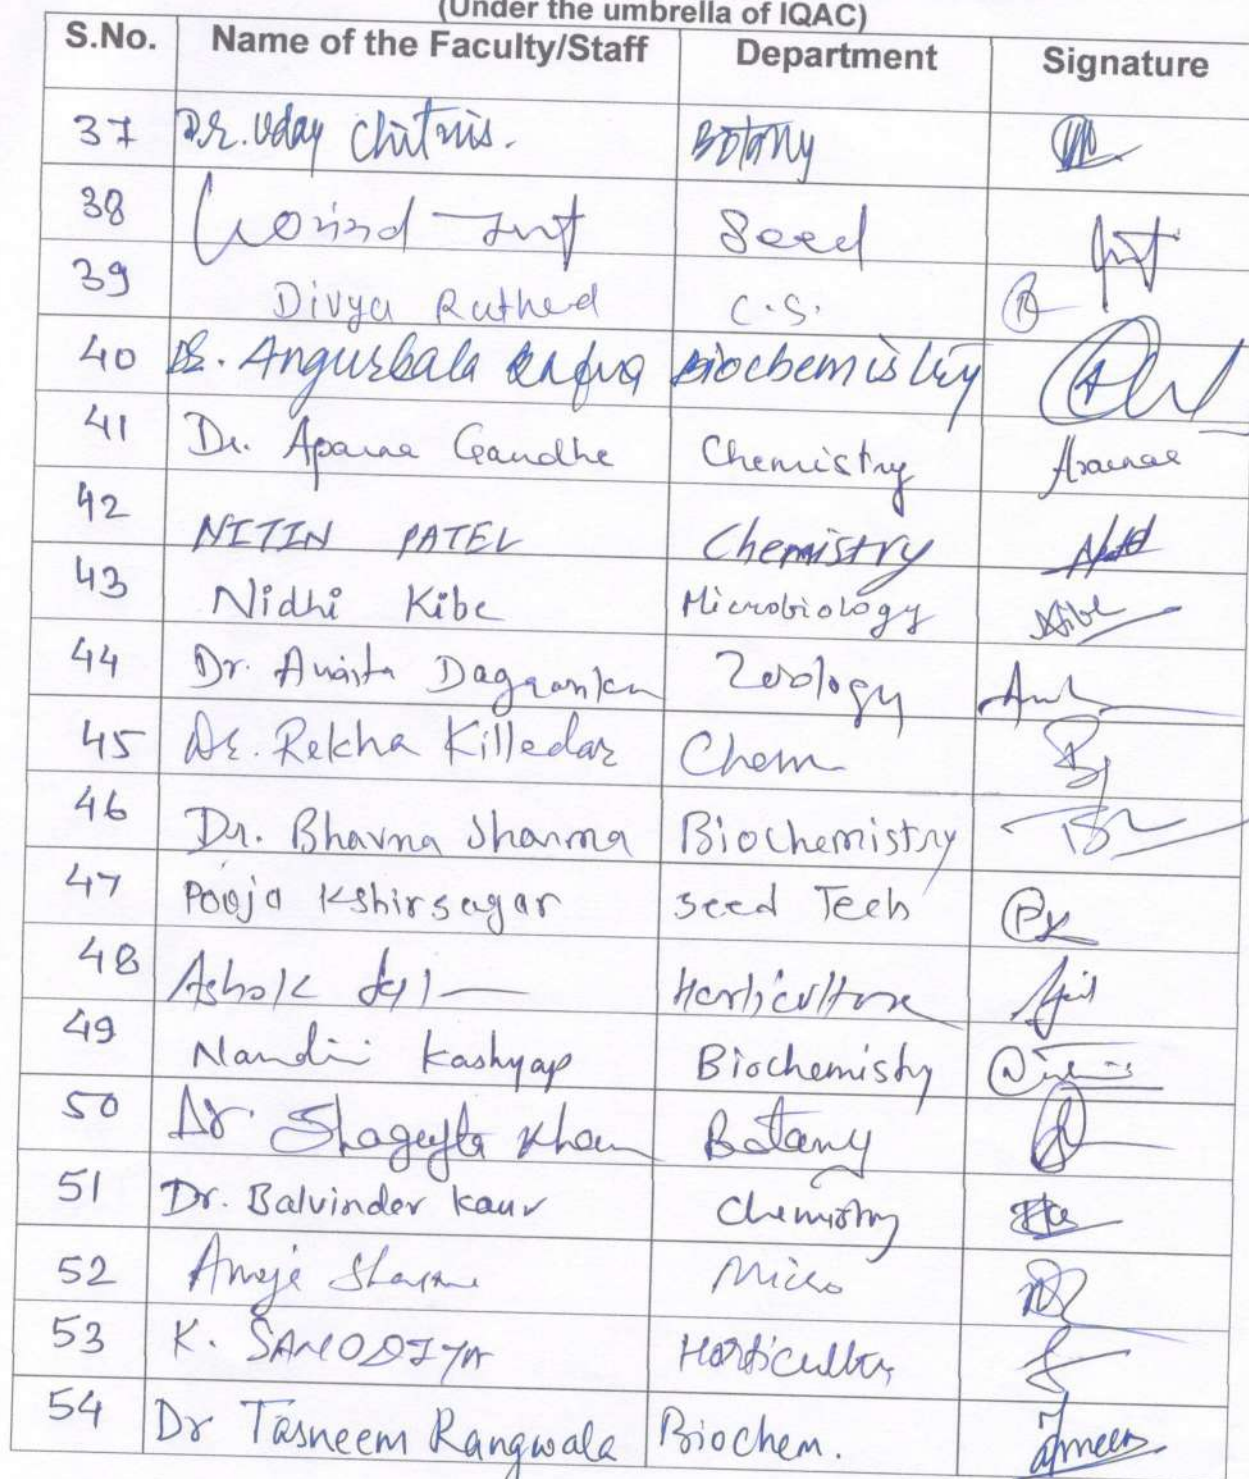 (Under the umbrella of IQAC)
S.No. Name of the Faculty/Staff Department Signature
37 Dr. Uday Chitnis. Botany
38 Govind Seed
39 Divya Rathed C.S.
40 Dr. Angurbala Biochemistry
41 Dr. Aparna Gandhe Chemistry
42 NITIN PATEL Chemistry
43 Nidhi Kibe Microbiology Kibe
44 Dr. Zoology
45 Dr. Rekha Killedar Chem
46 Dr. Bhavna Sharma Biochemistry
47 Pooja Kshirsagar Seed Tech
48 Ashok Horticulture
49 Nandini Kashyap Biochemistry
50 Dr. Shagufta Khan Botany
51 Dr. Balvinder Kaur Chemistry
52 Sharma Micro
53 K. SAMODIYA Horticulture
54 Dr Tasneem Rangwala Biochem.